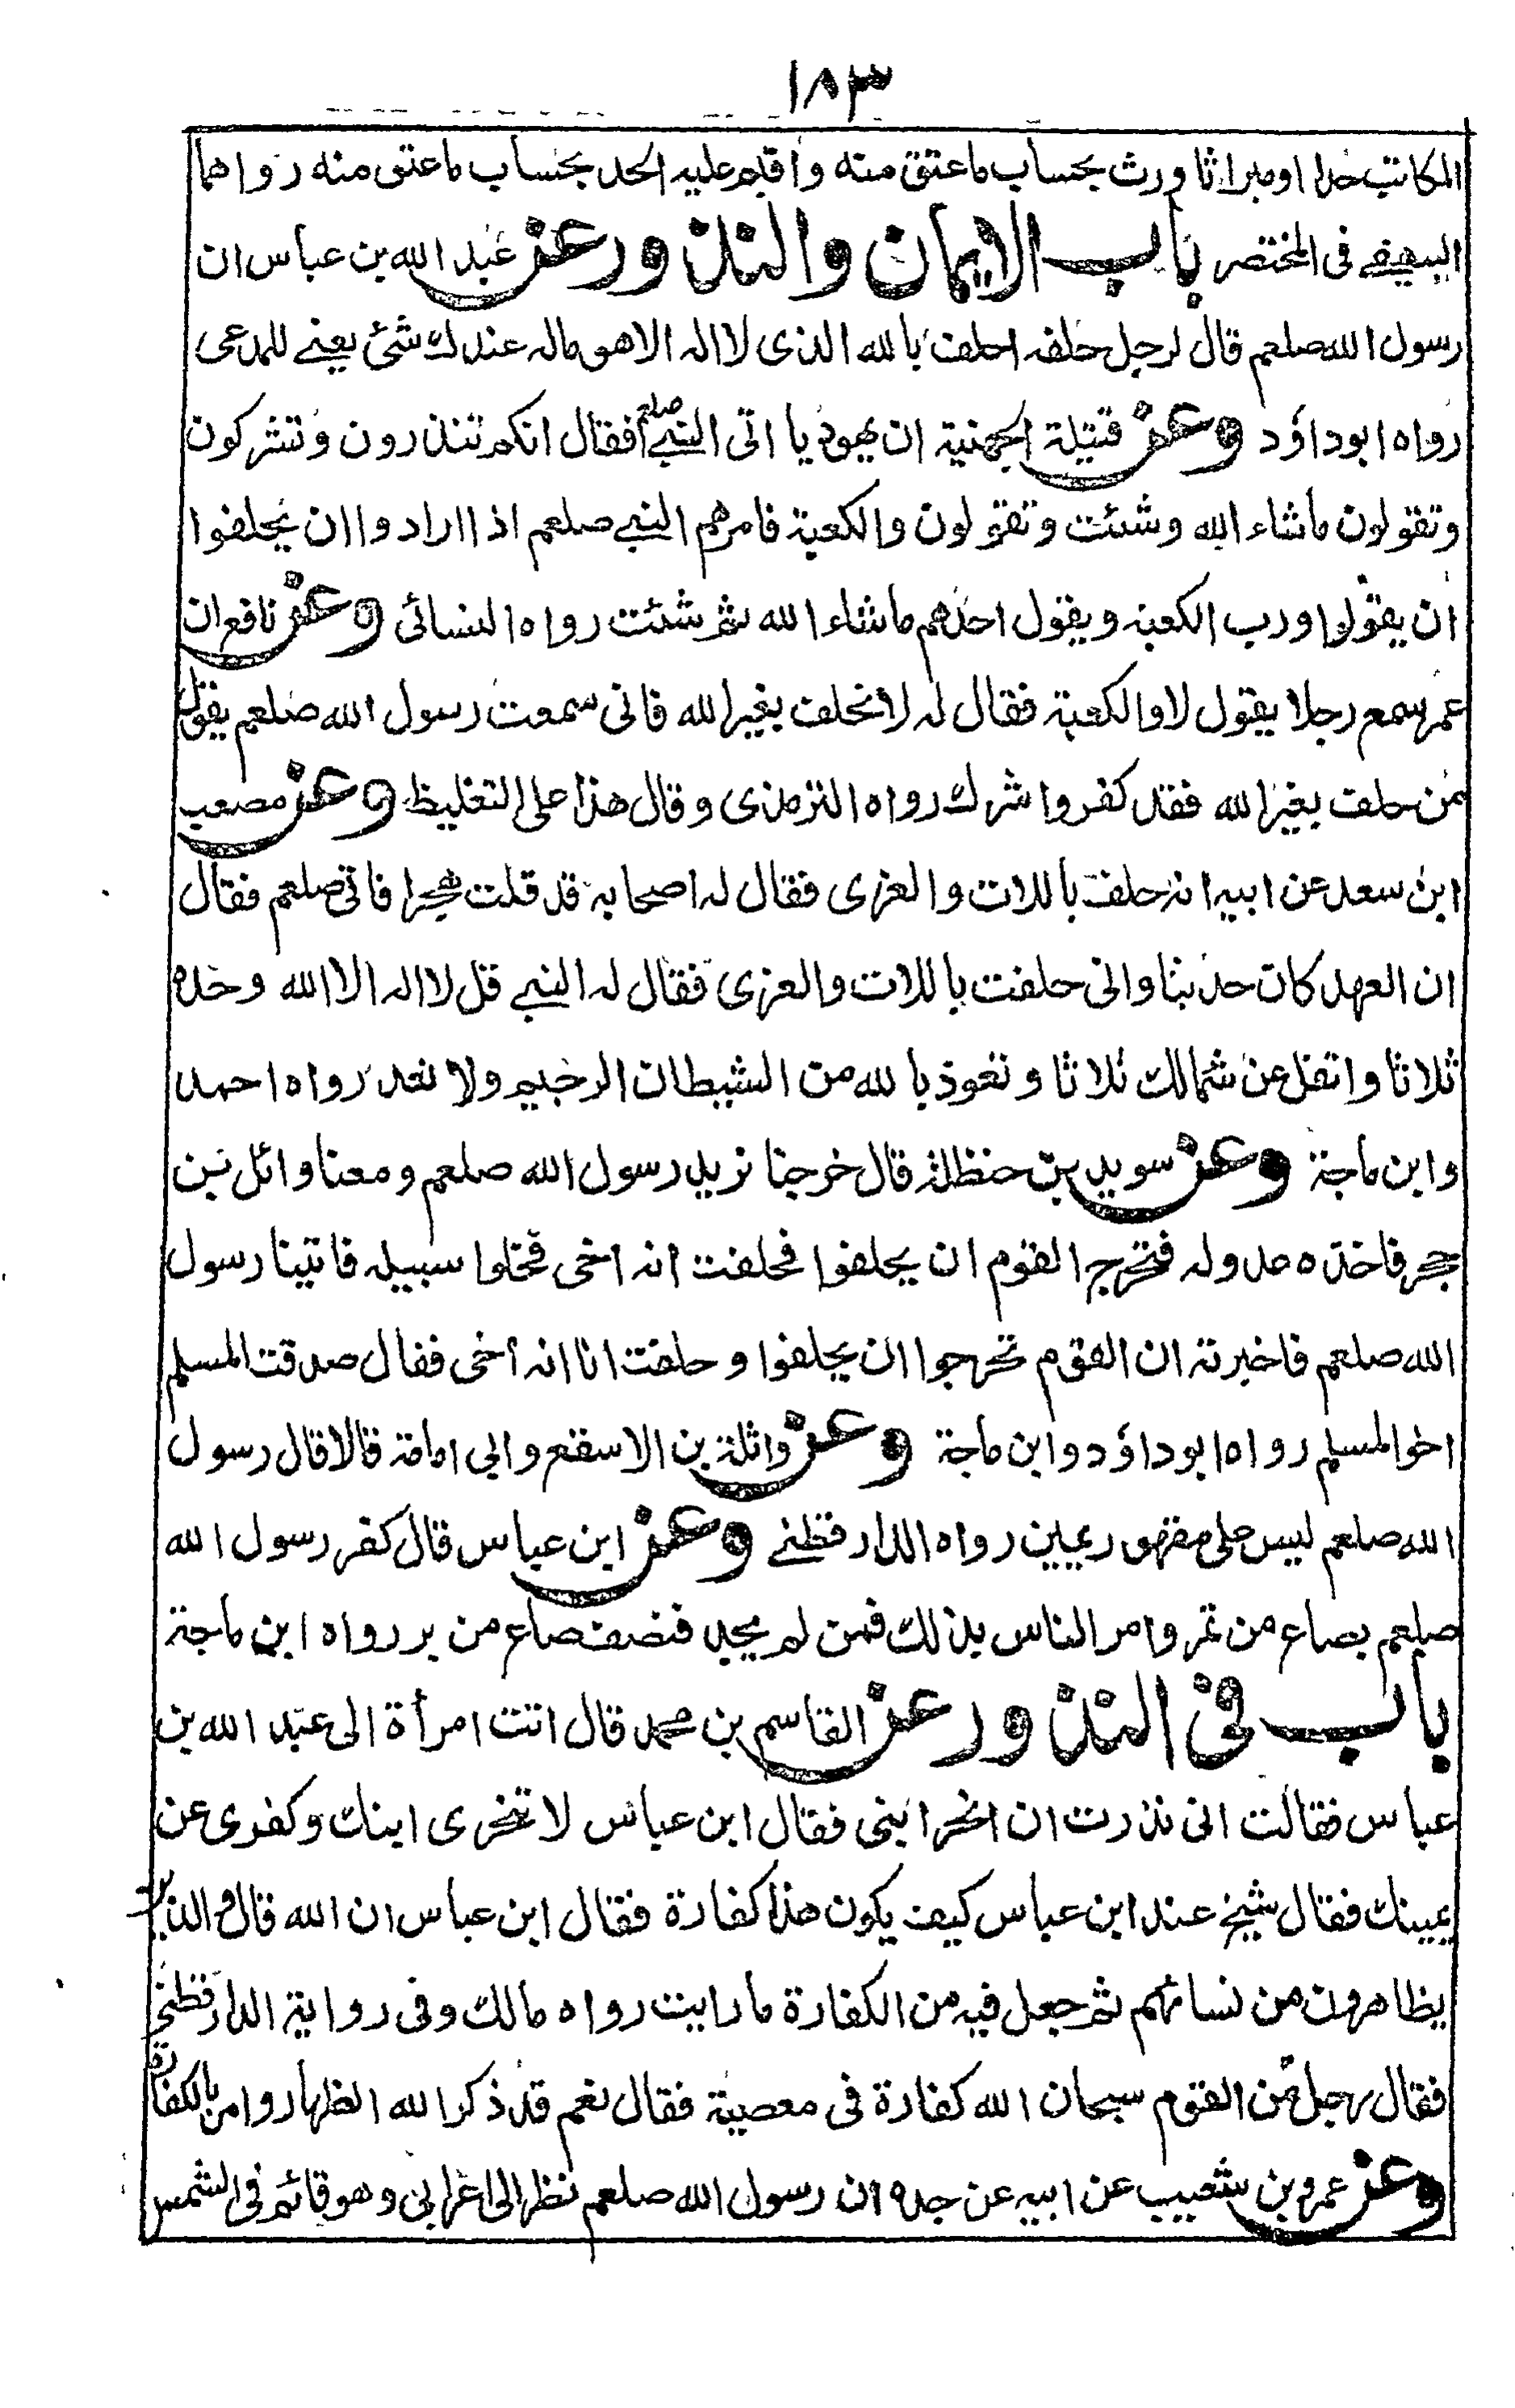 ١٨٣
المكاتب حدا او ميراثا ورث بحساب ما عتق منه واقيم عليه الحد بحساب ما عتق منه رواهما
البيهقي في المختصر باب الايمان والنذور عن عبد الله بن عباس ان
رسول الله صلعم قال لرجل حلفه احلف بالله الذى لا اله الا هو ماله عندك شئ يعنى للمدعى
رواه ابو داؤد وعن قتيلة الجهنية ان يهوديا اتى النبي صلعم فقال انكم تنذرون وتشركون
وتقولون ماشاء الله وشئت وتقولون والكعبة فامرهم النبي صلعم اذا ارادوا ان يحلفوا
ان يقولوا ورب الكعبة ويقول احدهم ماشاء الله ثم شئت رواه النسائى وعن نافع ان
عمر سمع رجلا يقول لا والكعبة فقال له لا تحلف بغير الله فانى سمعت رسول الله صلعم يقول
من حلف بغير الله فقد كفر واشرك رواه الترمذى وقال هذا على التغليظ وعن مصعب
ابن سعد عن ابيه انه حلف باللات والعزى فقال له اصحابه قد قلت هجرا فاتى صلعم فقال
ان العهد كان حديثا وانى حلفت باللات والعزى فقال له النبي قل لا اله الا الله وحده
ثلاثا واتفل عن شمالك ثلاثا وتعوذ بالله من الشيطان الرجيم ولا تعد رواه احمد
وابن ماجة وعن سويد بن حنظلة قال خرجنا نريد رسول الله صلعم ومعنا وائل بن
حجر فاخذه عدو له فتحرج القوم ان يحلفوا فحلفت انه اخى فخلوا سبيله فاتينا رسول
الله صلعم فاخبرته ان القوم تحرجوا ان يحلفوا وحلفت انا انه اخى فقال صدقت المسلم
اخو المسلم رواه ابو داؤد وابن ماجة وعن واثلة بن الاسقع وابى امامة قالا قال رسول
الله صلعم ليس على مقهور يمين رواه الدارقطنى وعن ابن عباس قال كفر رسول الله
صلعم بصاع من تمر وامر الناس بذلك فمن لم يجد فنصف صاع من بر رواه ابن ماجة
باب فى النذور عن القاسم بن محمد قال اتت امرأة الى عبد الله بن
عباس فقالت انى نذرت ان انحر ابنى فقال ابن عباس لا تنحرى ابنك وكفرى عن
يمينك فقال شيخ عند ابن عباس كيف يكون هذا كفارة فقال ابن عباس ان الله قال والذين
يظاهرون من نسائهم ثم جعل فيه من الكفارة ما رايت رواه مالك وفى رواية الدارقطنى
فقال رجل من القوم سبحان الله كفارة فى معصية فقال نعم قد ذكر الله الظهار وامر بالكفارة
وعن عمرو بن شعيب عن ابيه عن جده ان رسول الله صلعم نظر الى اعرابى وهو قائم فى الشمس